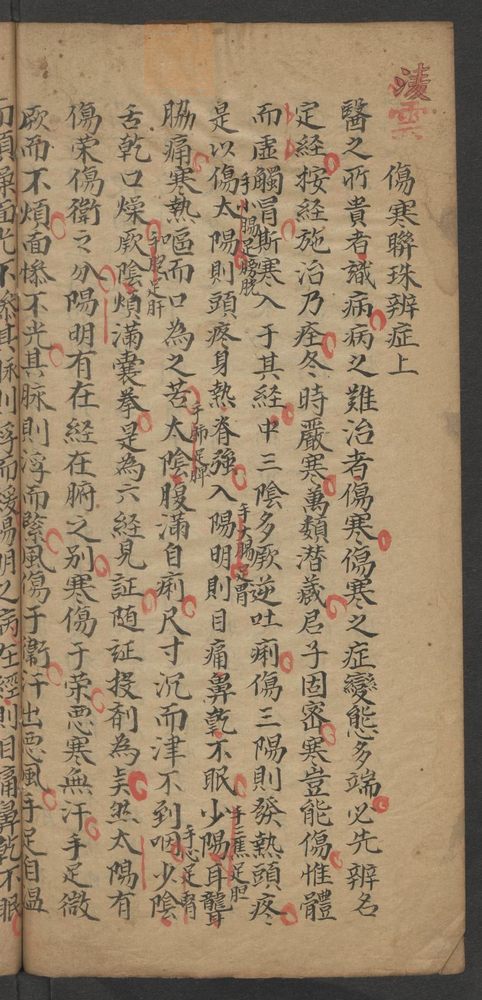 凌雲
傷寒聯珠辨症上
醫之所貴者識病病之難治者傷寒傷寒之症變態多端必先辨名
定經按經施治乃痊冬時嚴寒萬類潜蔵君子固密寒豈能傷惟體
而虛觸冒斯寒入于其經中三陰多厥逆吐痢傷三陽則發熱頭疼
是以傷太陽則頭疼身熱脊強入陽明則目痛鼻乾不眠少陽耳聾
手小腸足膀胱
手大腸足胃
手三焦足胆
脇痛寒熱嘔而口為之苦太陰腹滿自痢尺寸沉而津不到咽少陰
手肺足脾
手心足腎
舌乾口燥厥陰煩滿囊拳是為六經見証随証投剤為美然太陽有
足肝
傷荣傷衛之分陽明有在経在腑之別寒傷于荣悪寒無汗手足微
厥而不煩面惨不光其脉則浮而緊風傷于衛汗出悪風手足自温
而煩燥面光不惨其脉則浮而緩陽明之病在經則目痛鼻乾不眠